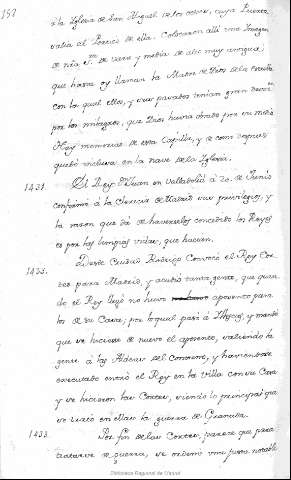 157
à la Iglesia de San Miguel de los octoes, cuya Puerta
salia al Portico de ella. Colocaron alli una Imagen
de nra. Sra. de vara y media de alto muy antigua,
que hasta oy llaman la Madre de Dios de la
con lo qual ellos, y sus privados tenian gran
por los milagros, que Dios havia obrado por su medio
Hay memorias de esta Capilla, y de como despues
quedó inclusa en la nave de la Iglesia.
1431. El Rey Dn Juan en Valladolid à 20. de Junio
confirmó à la Clerecia de Madrid sus privilegios, y
la razon que dá de haverselos concedido los Reyes
es por las limpias vidas, que hacian.
Desde Ciudad Rodrigo Convocó el Rey Cor-
1433. tes para Madrid, y acudió tanta gente, que quan-
do el Rey llegó no huvo aposento para
los de su Casa; por lo qual pasó à Illescas, y mandó
que se hiciese de nuevo el aposento, saliendo la
gente à las Aldeas del Contorno, y haviendose
executado entró el Rey en la Villa con su Casa
y se hicieron las Cortes, siendo lo principal que
se trató en ellas la guerra de Granada.
1433. Por fin de las Cortes, parece que para
tratarse de guerra, se ordenó una justa notable
Biblioteca Regional de Madrid